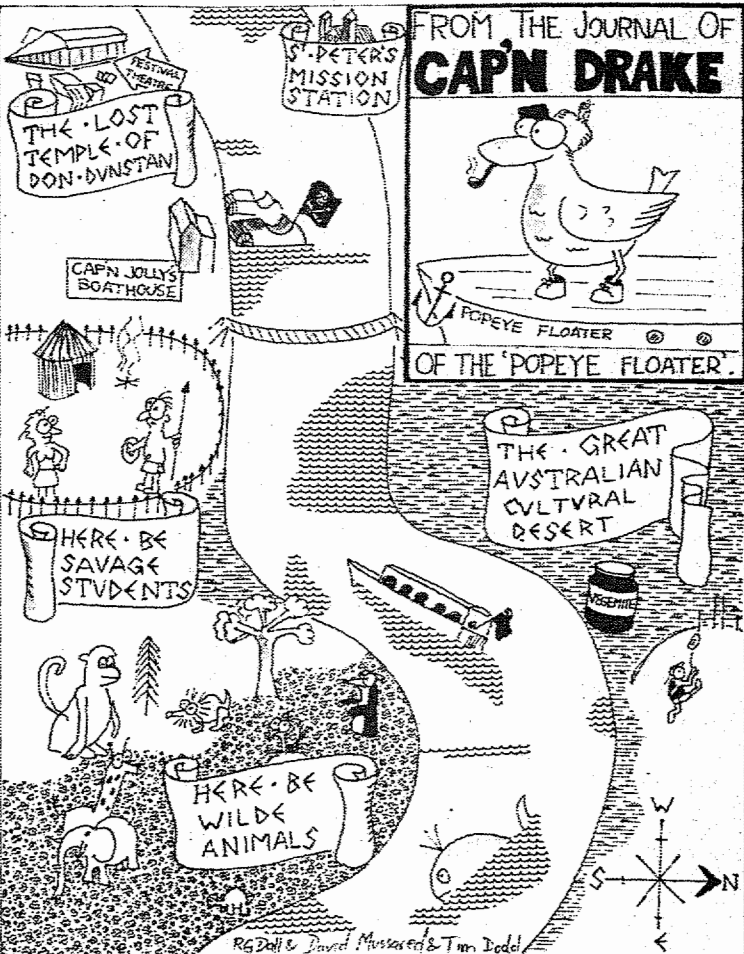 FROM THE JOURNAL OF
CAP'N DRAKE
POPEYE FLOATER
OF THE 'POPEYE FLOATER'.
FESTIVAL
THEATRE
THE · LOST
TEMPLE · OF
DON · DVNSTAN
ST · PETER'S
MISSION
STATION
CAP'N JOLLYS
BOATHOUSE
THE · GREAT
AVSTRALIAN
CVLTVRAL
DESERT
HERE · BE
SAVAGE
STVDENTS
VEGEMITE
HERE · BE
WILDE
ANIMALS
W
S
N
E
RG Dall & David Mussared & Tim Dodd